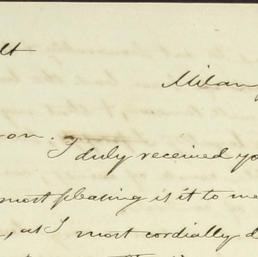 lt
Milan
on.
I duly received yo
most pleasing is it to me
, as I most cordially d